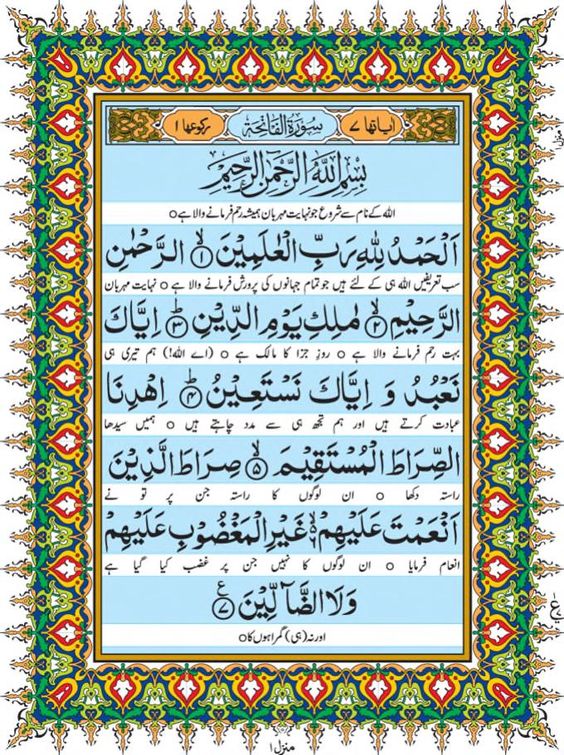 اٰیاتها ۷ سُوْرَةُ الْفَاتِحَة رکوعها ۱
بِسْمِ اللّٰهِ الرَّحْمٰنِ الرَّحِیْمِ
اللہ کے نام سے شروع جو نہایت مہربان ہمیشہ رحم فرمانے والا ہے ○
اَلْحَمْدُ لِلّٰهِ رَبِّ الْعٰلَمِیْنَ ۙ﴿۱﴾ الرَّحْمٰنِ
سب تعریفیں اللہ ہی کے لئے ہیں جو تمام جہانوں کی پرورش فرمانے والا ہے ○ نہایت مہربان
الرَّحِیْمِ ۙ﴿۲﴾ مٰلِكِ یَوْمِ الدِّیْنِ ؕ﴿۳﴾ اِیَّاكَ
بہت رحم فرمانے والا ہے ○ روزِ جزا کا مالک ہے ○ (اے اللہ!) ہم تیری ہی
نَعْبُدُ وَ اِیَّاكَ نَسْتَعِیْنُ ؕ﴿۴﴾ اِهْدِنَا
عبادت کرتے ہیں اور ہم تجھ ہی سے مدد چاہتے ہیں ○ ہمیں سیدھا
الصِّرَاطَ الْمُسْتَقِیْمَ ۙ﴿۵﴾ صِرَاطَ الَّذِیْنَ
راستہ دکھا ○ ان لوگوں کا راستہ جن پر تو نے
اَنْعَمْتَ عَلَیْهِمْ ۙ﴿۶﴾ غَیْرِ الْمَغْضُوْبِ عَلَیْهِمْ
انعام فرمایا ○ ان لوگوں کا نہیں جن پر غضب کیا گیا ہے
وَلَا الضَّآلِّیْنَ ﴿۷﴾ ع
اور نہ (ہی) گمراہوں کا ○
منزل
منزل ۱